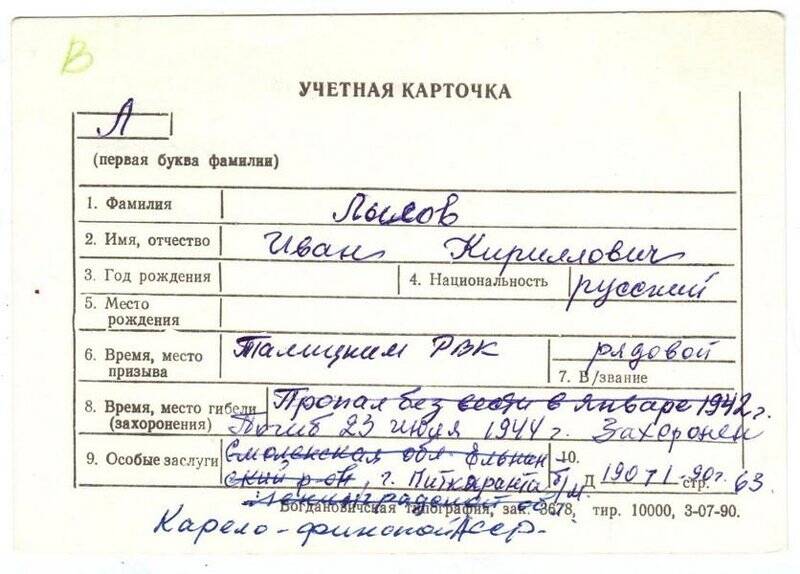 В
УЧЕТНАЯ КАРТОЧКА
Л
(первая буква фамилии)
1. Фамилия Лысов
2. Имя, отчество Иван Кириллович
3. Год рождения 4. Национальность русский
5. Место рождения
6. Время, место призыва Талицким РВК рядовой
7. В/звание
8. Время, место гибели Пропал без вести в январе 1942 г.
(захоронения) Погиб 23 июля 1944 г. Захоронен
9. Особые заслуги Смоленская обл. Ельнин 10.
ский р-он, г. Питкяранта Д 19071-90г. стр. 63
Богдановичская типография, зак. 3678, тир. 10000, 3-07-90.
Карело-финской